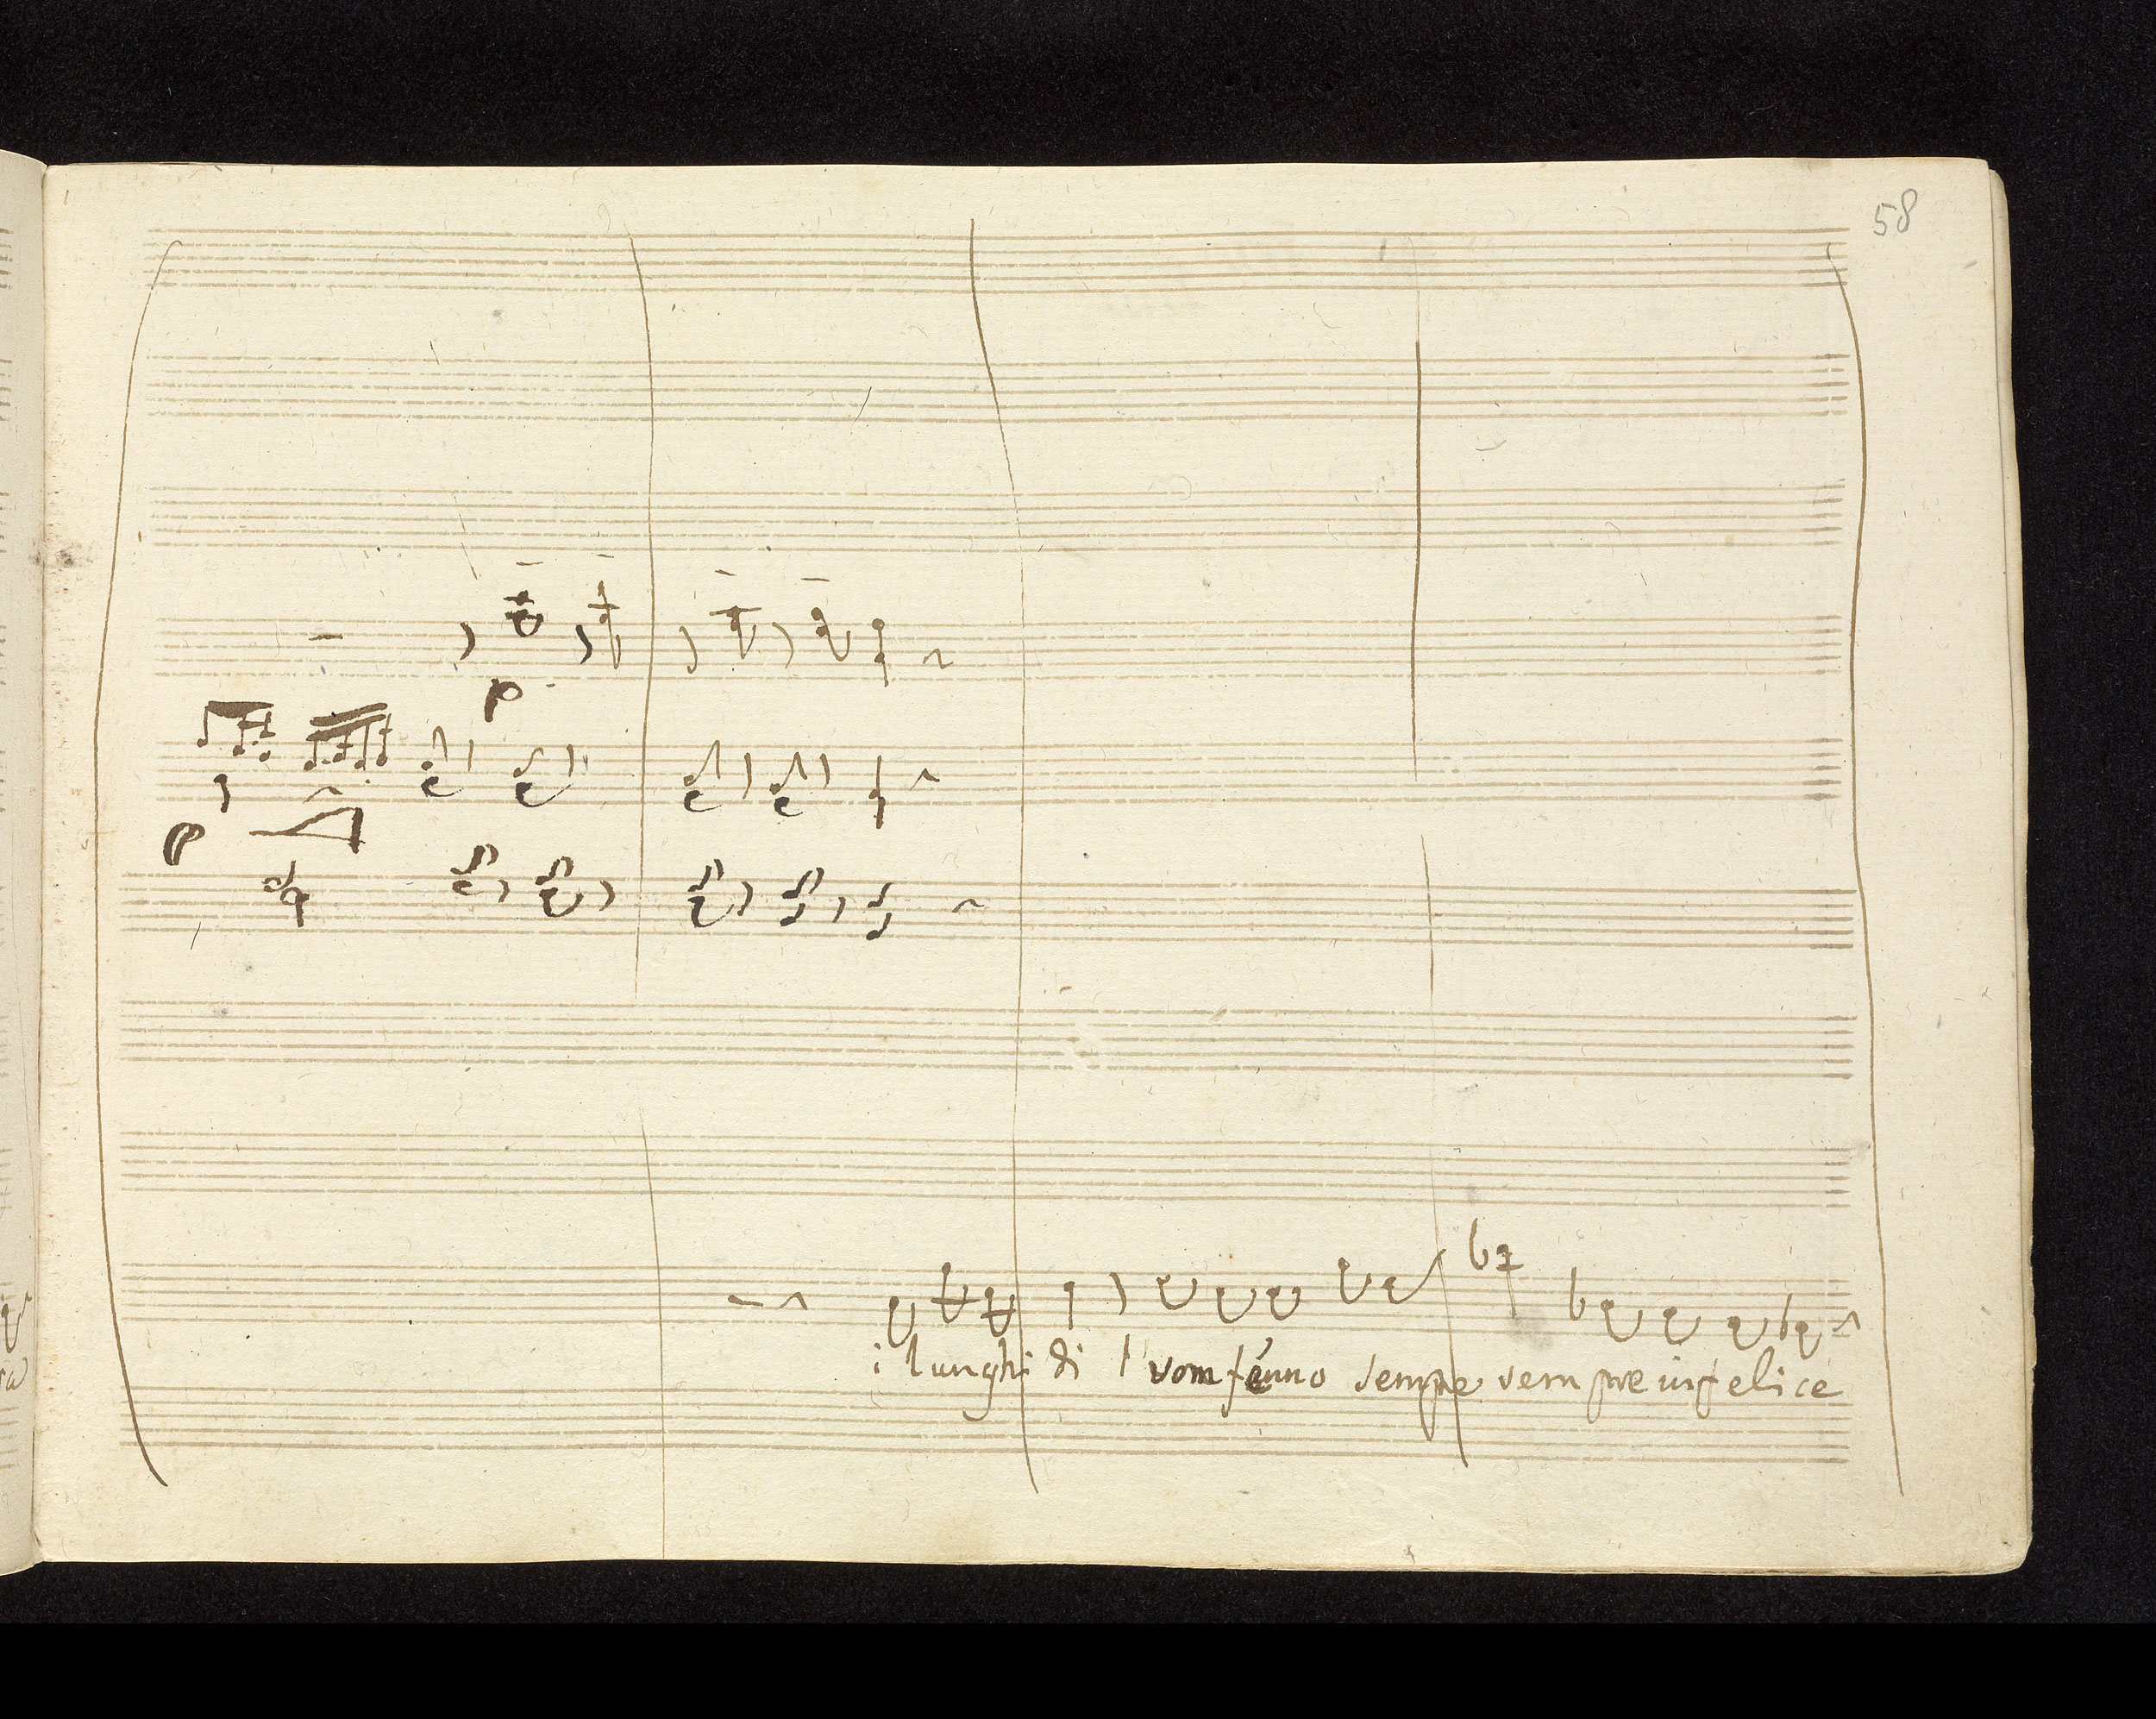 58
p
p
i lunghi di l'uom fenno sempre sempre infelice